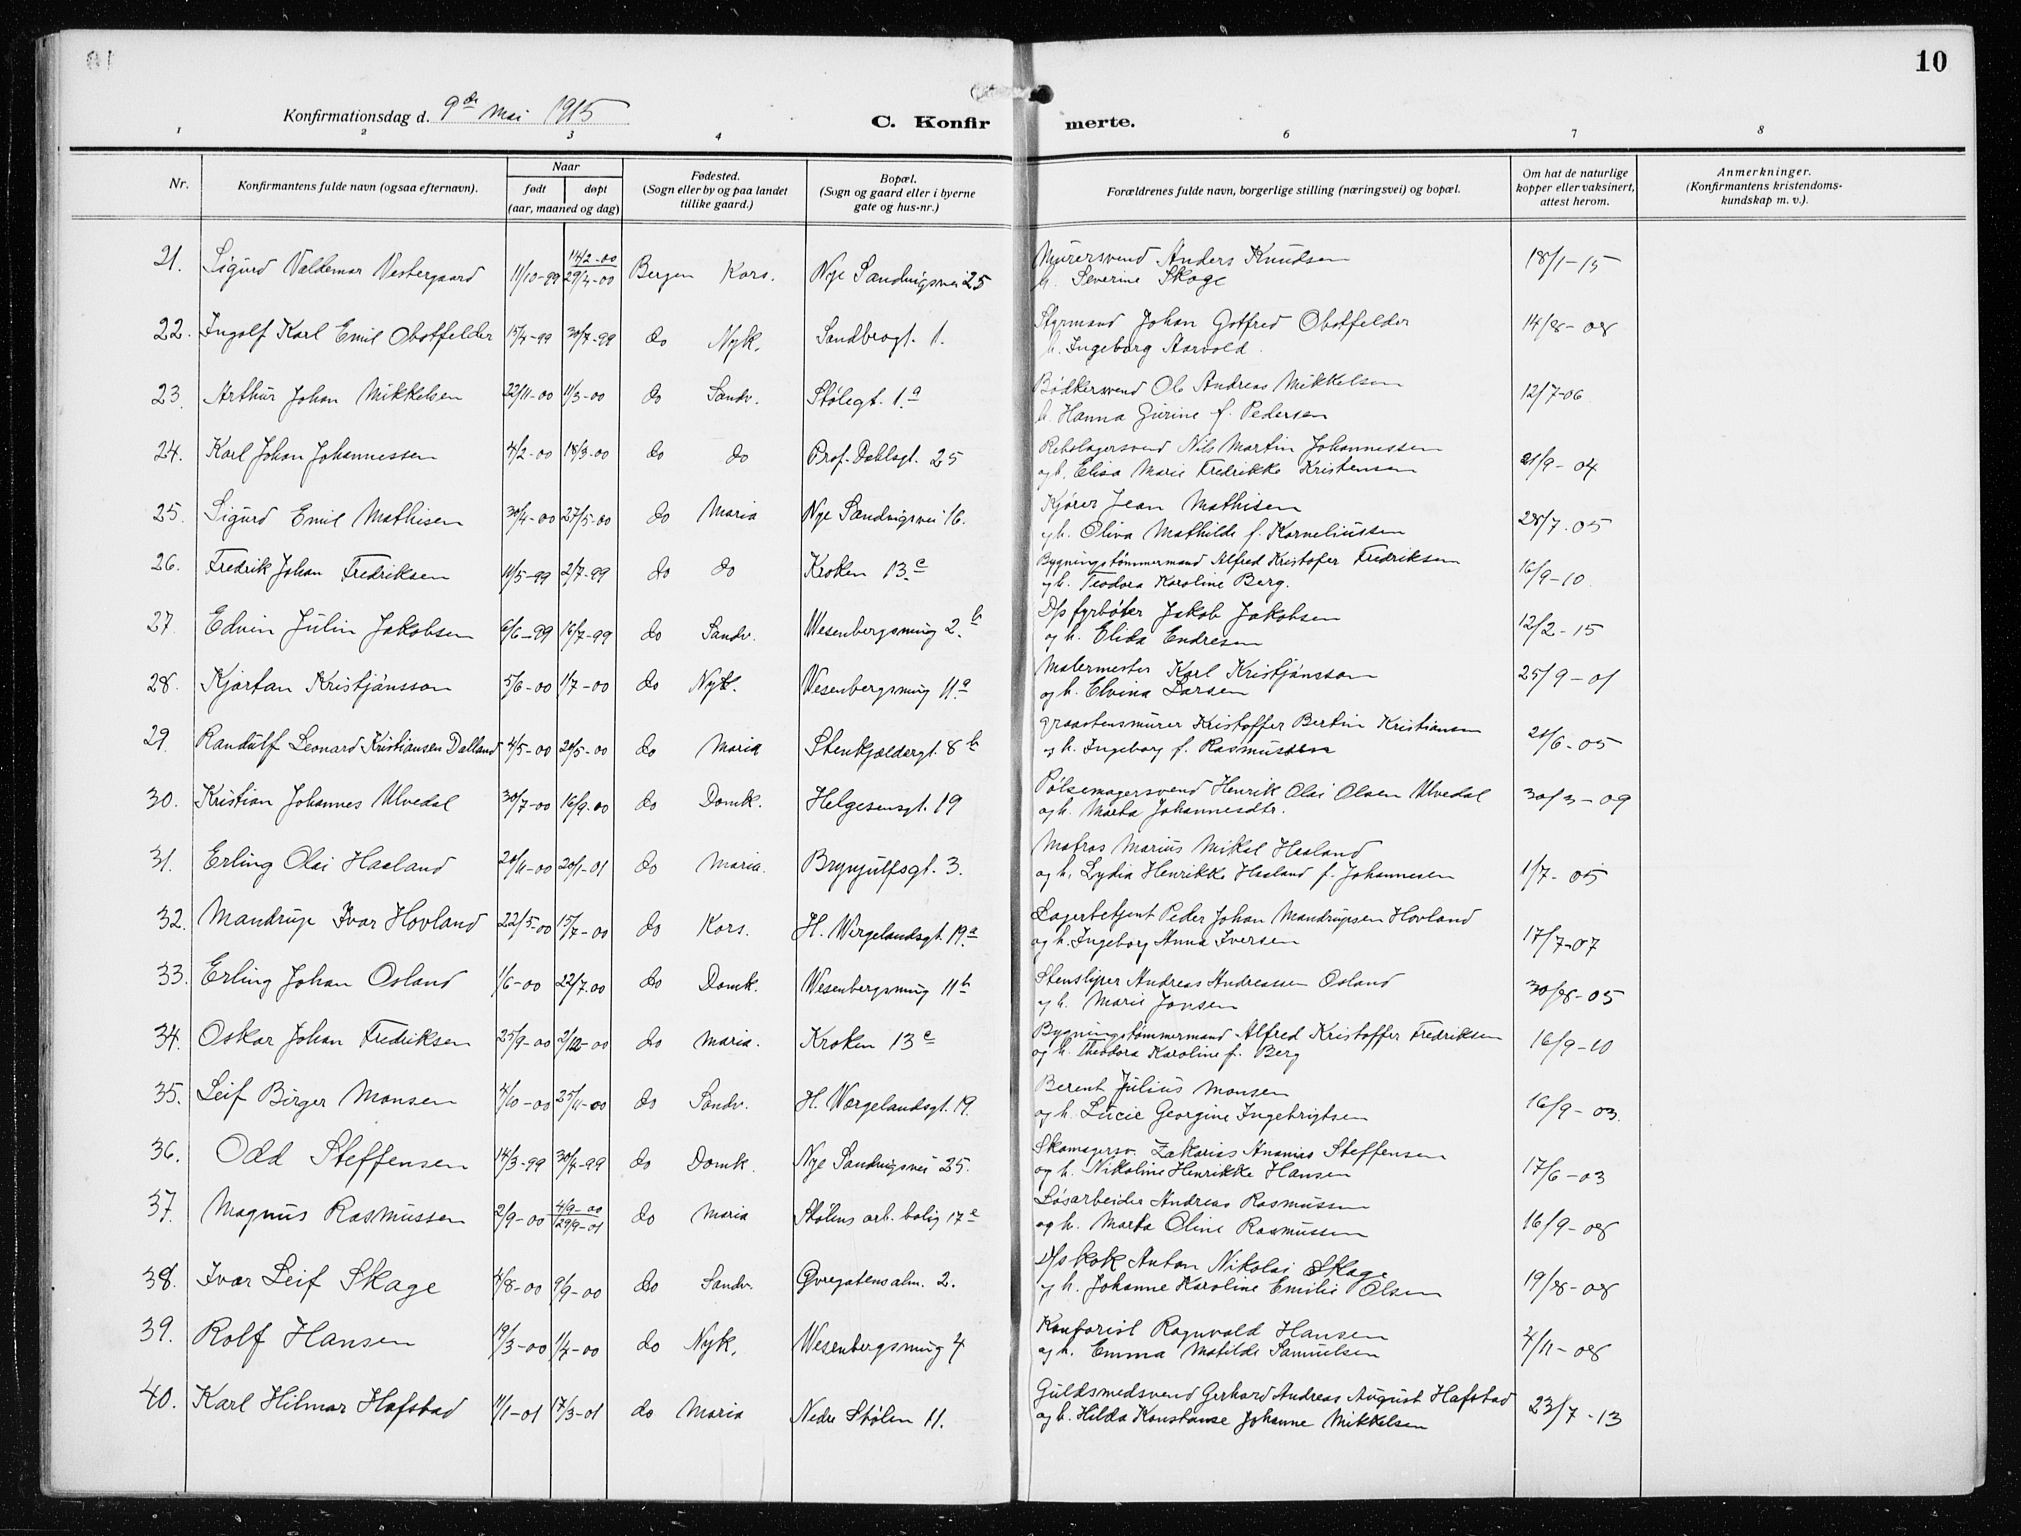 10
Konfirmationsdag d. 9de Mai 1915
C. Konfirmerte.
1 2 3 4 5 6 7 8
Nr. | Konfirmantens fulde navn (ogsaa efternavn). | Naar født døpt (aar, maaned og dag) | Fødested. (Sogn eller by og paa landet tillike gaard.) | Bopæl. (Sogn og gaard eller i byerne gate og hus-nr.) | Forældrenes fulde navn, borgerlige stilling (næringsvei) og bopæl. | Om hat de naturlige kopper eller vaksinert, attest herom. | Anmerkninger. (Konfirmantens kristendoms-kundskap m. v.).
21. Sigurd Valdemar Vestergaard 11/10-99 14/2-00 29/4-00 Bergen Kors. Nye Sandvigsvei 25 Murersvend Anders Knudsen 18/1-15
h. Severine Skage
22. Ingolf Karl Emil Obstfelder 15/4-99 30/7-99 do Nyk. Sandbrogt. 1. Styrmand Johan Gotfred Obstfelder 14/8-08
h. Ingeborg Aarvold.
23. Arthur Johan Mikkelsen 22/11-00 11/3-00 do Sandv. Stølegt. 1.a Bødkersvend Ole Andreas Mikkelsen 12/7-06
h. Hanna Gurine f. Pedersen
24. Karl Johan Johannessen 4/2-00 18/3-00 do do Prof. Dahlsgt. 25 Rebslagersvend Nils Martin Johannessen 21/9-04
og h. Elisa Marie Fredrikke Kristensen
25. Sigurd Emil Mathisen 30/4-00 27/5-00 do Maria Nye Sandvigsvei 16. Kjører Jean Mathisen 28/7-05
og h. Oliva Mathilde f. Korneliussen
26. Fredrik Johan Fredriksen 11/5-99 2/7-99 do do Kroken 13.c Bygningstømmermand Alfred Kristofer Fredriksen 16/9-10
og h. Teodora Karoline Berg.
27. Edvin Julin Jakobsen 6/6-99 16/7-99 do Sandv. Wesenbergsmug 2.b D/s fyrbøter Jakob Jakobsen 12/2-15
og h. Elida Endresen
28. Kjartan Kristjánsson 5/6-00 1/7-00 do Nyk. Wesenbergsmug 11.a Malermester Karl Kristjánsson 25/9-01
og h. Elvina Larsen
29. Randulf Leonard Kristiansen Dalland 4/5-00 20/5-00 do Maria Stenkjeldergt. 8b graastensmurer Kristoffer Bertin Kristiansen 21/6-05
og h. Ingeborg f. Rasmussen
30. Kristian Johannes Ulvedal 30/7-00 16/9-00 do Domk. Helgesensgt. 19 Pølsemagersvend Henrik Olai Olsen Ulvedal 30/3-09
og h. Marta Johannesdtr.
31. Erling Olai Haaland 20/11-00 20/1-01 do Maria. Brynjulfsgt. 3. Matros Marius Mikal Haaland 1/7-05
og h. Lydia Henrikke Haaland f. Johannesen
32. Mandrup Ivar Hovland 22/5-00 15/7-00 do Kors. H. Wergelandsgt. 19.a Lagerbetjent Peder Johan Mandrupsen Hovland 17/7-07
og h. Ingeborg Anna Iversen
33. Erling Johan Osland 1/6-00 22/7-00 do Domk. Wesenbergsmug 11b Stensliper Andreas Andreassen Osland 30/8-05
og h. Marie Jonsen
34. Oskar Johan Fredriksen 25/9-00 2/12-00 do Maria. Kroken 13c Bygningstømmermand Alfred Kristoffer Fredriksen 16/9-10
og h. Theodora Karoline f. Berg
35. Leif Birger Monsen 4/10-00 25/11-00 do Sandv. H. Wergelandsgt. 19. Berent Julius Monsen 16/9-03.
og h. Lucie Georgine Ingebrigtsen
36. Odd Steffensen 14/3-99 30/4-99 do Domk. Nye Sandvigsvei 25. Skomagersv. Zakarias Ananias Steffensen 17/6-03
og h. Nikoline Henrikke Hansen
37. Magnus Rasmussen 2/9-00 4/9-00 29/9-01 do Maria Stølens arb. bolig 17e Løsarbeider Andreas Rasmussen 16/9-08
og h. Marta Oline Rasmussen
38. Ivar Leif Skage 4/8-00 9/9-00 do Sandv. Øvregatens alm. 2. D/s kok Anton Nikolai Skage 19/8-08
og h. Johanne Karoline Emilie Olsen
39. Rolf Hansen 19/3-00 1/4-00 do Nyk. Wesenbergsmug 4 Kontorist Ragnvald Hansen 4/11-08
og h. Emma Matilde Samuelsen
40. Karl Hilmar Hafstad 11/1-01 17/3-01 do Maria Nedre Stølen 11. Guldsmedsvend Gerhard Andreas August Hafstad 23/7-13
og h. Hilda Konstanse Johanne Mikkelsen